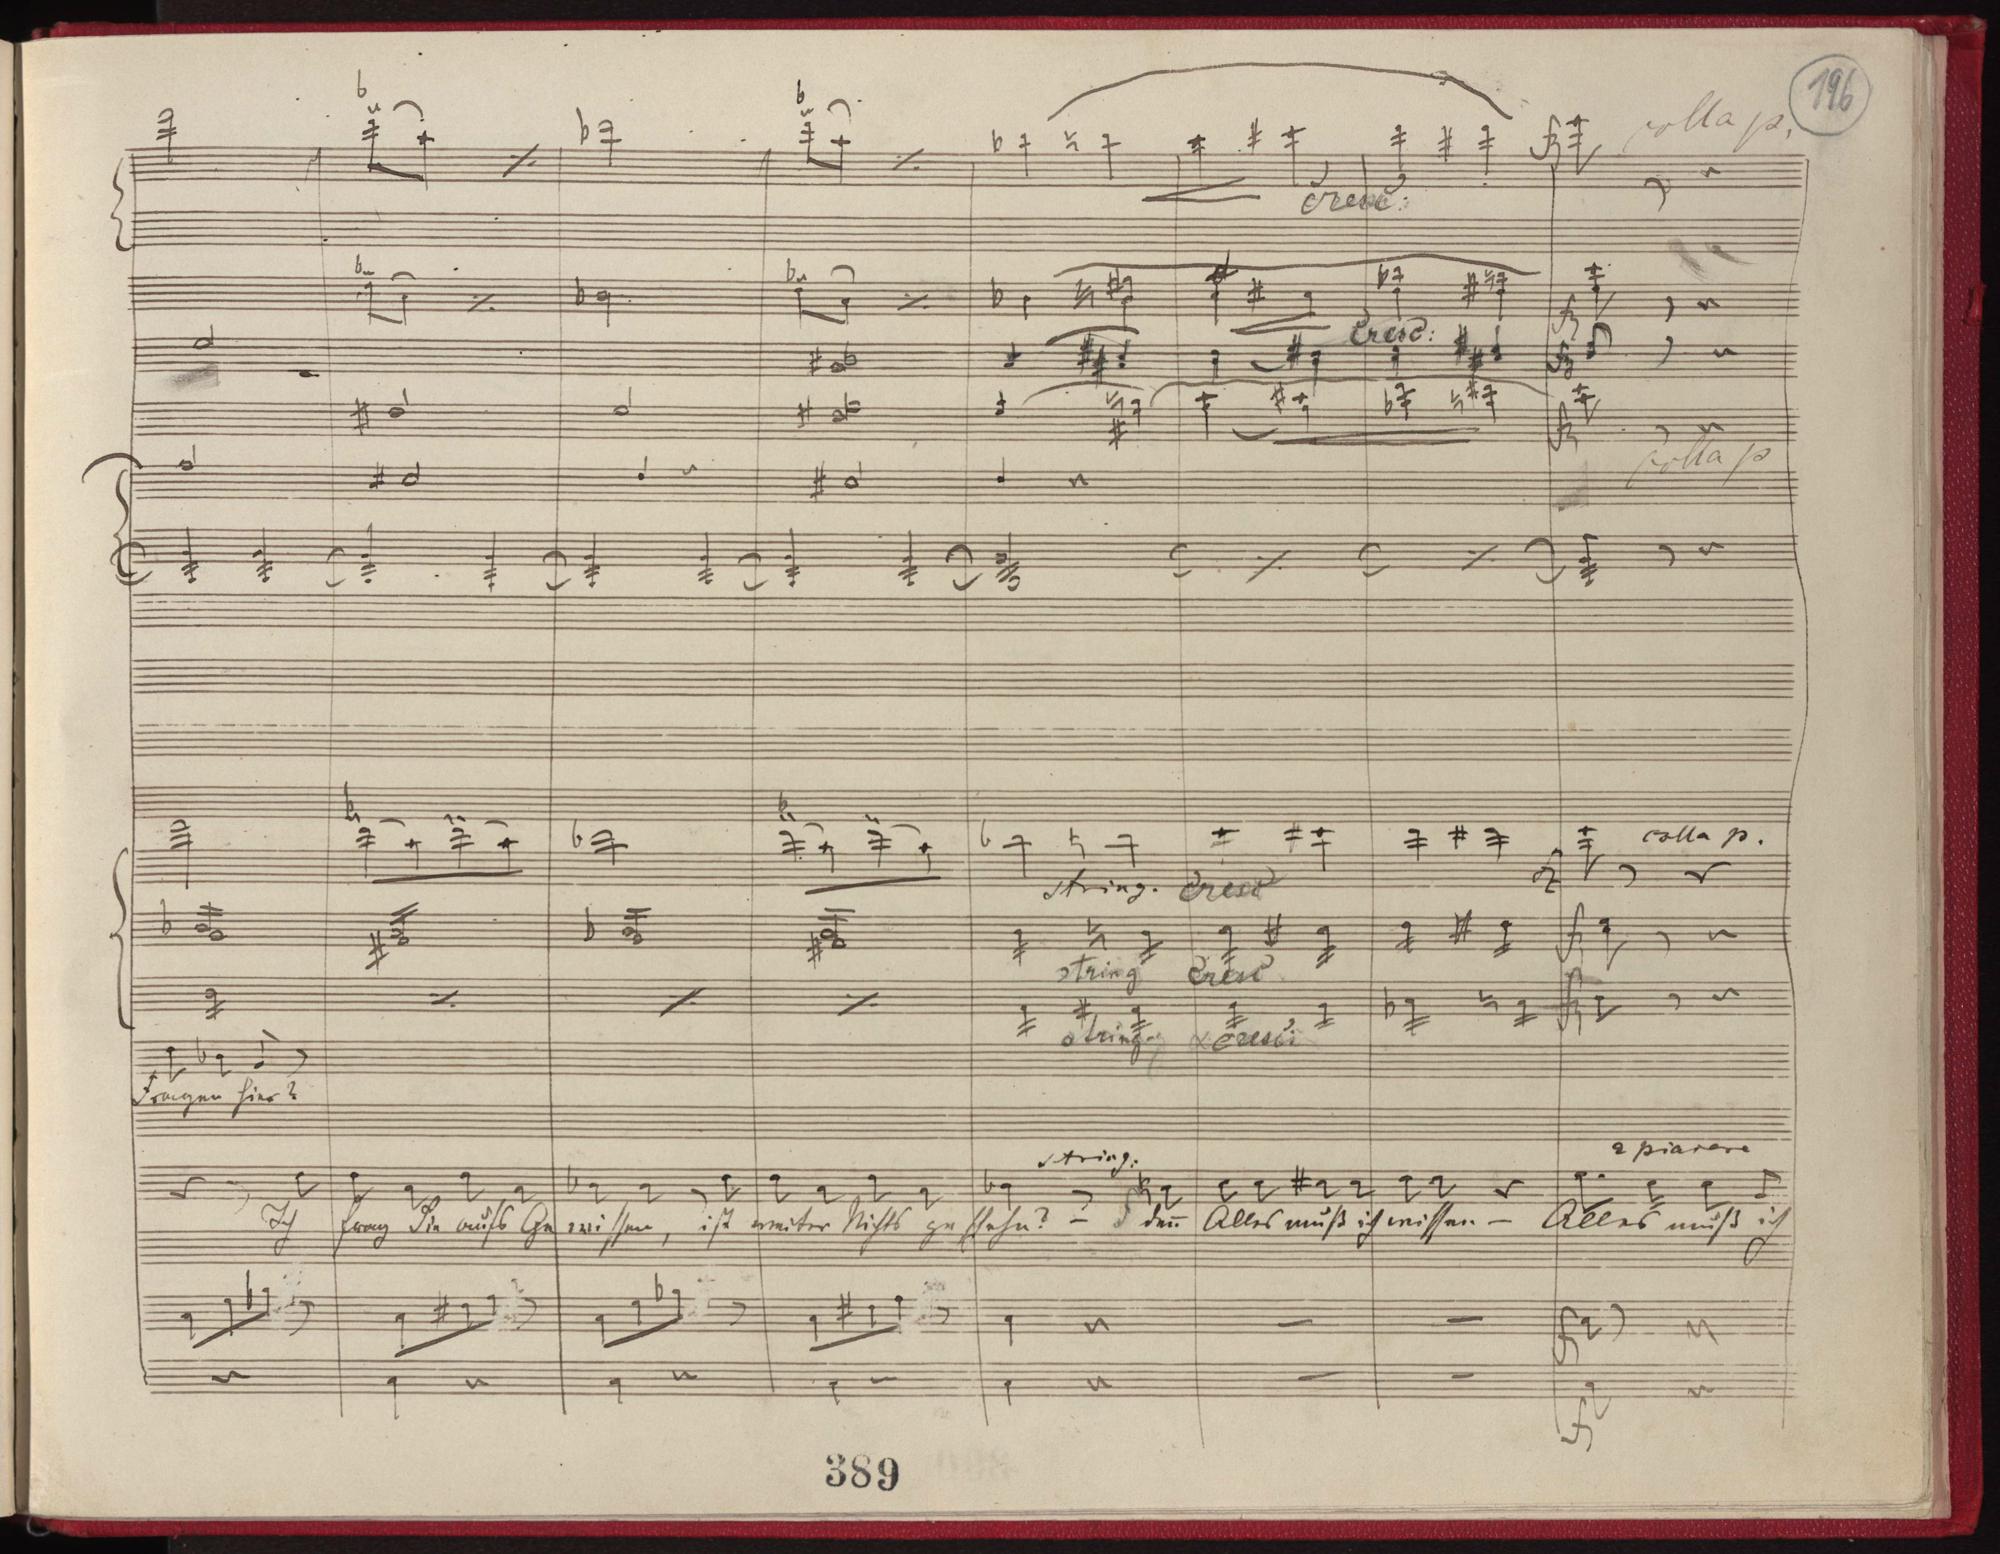 196
colla p.
cresc:
cresc:
colla p
colla p.
string. cresc
string cresc
string cresc:
Fragen hier?
string:
a piacere
Ich frag Sie aufs Gewissen, ist weiter Nichts geschehn? – den̄ Alles muß ich wissen – Alles muß ich
389